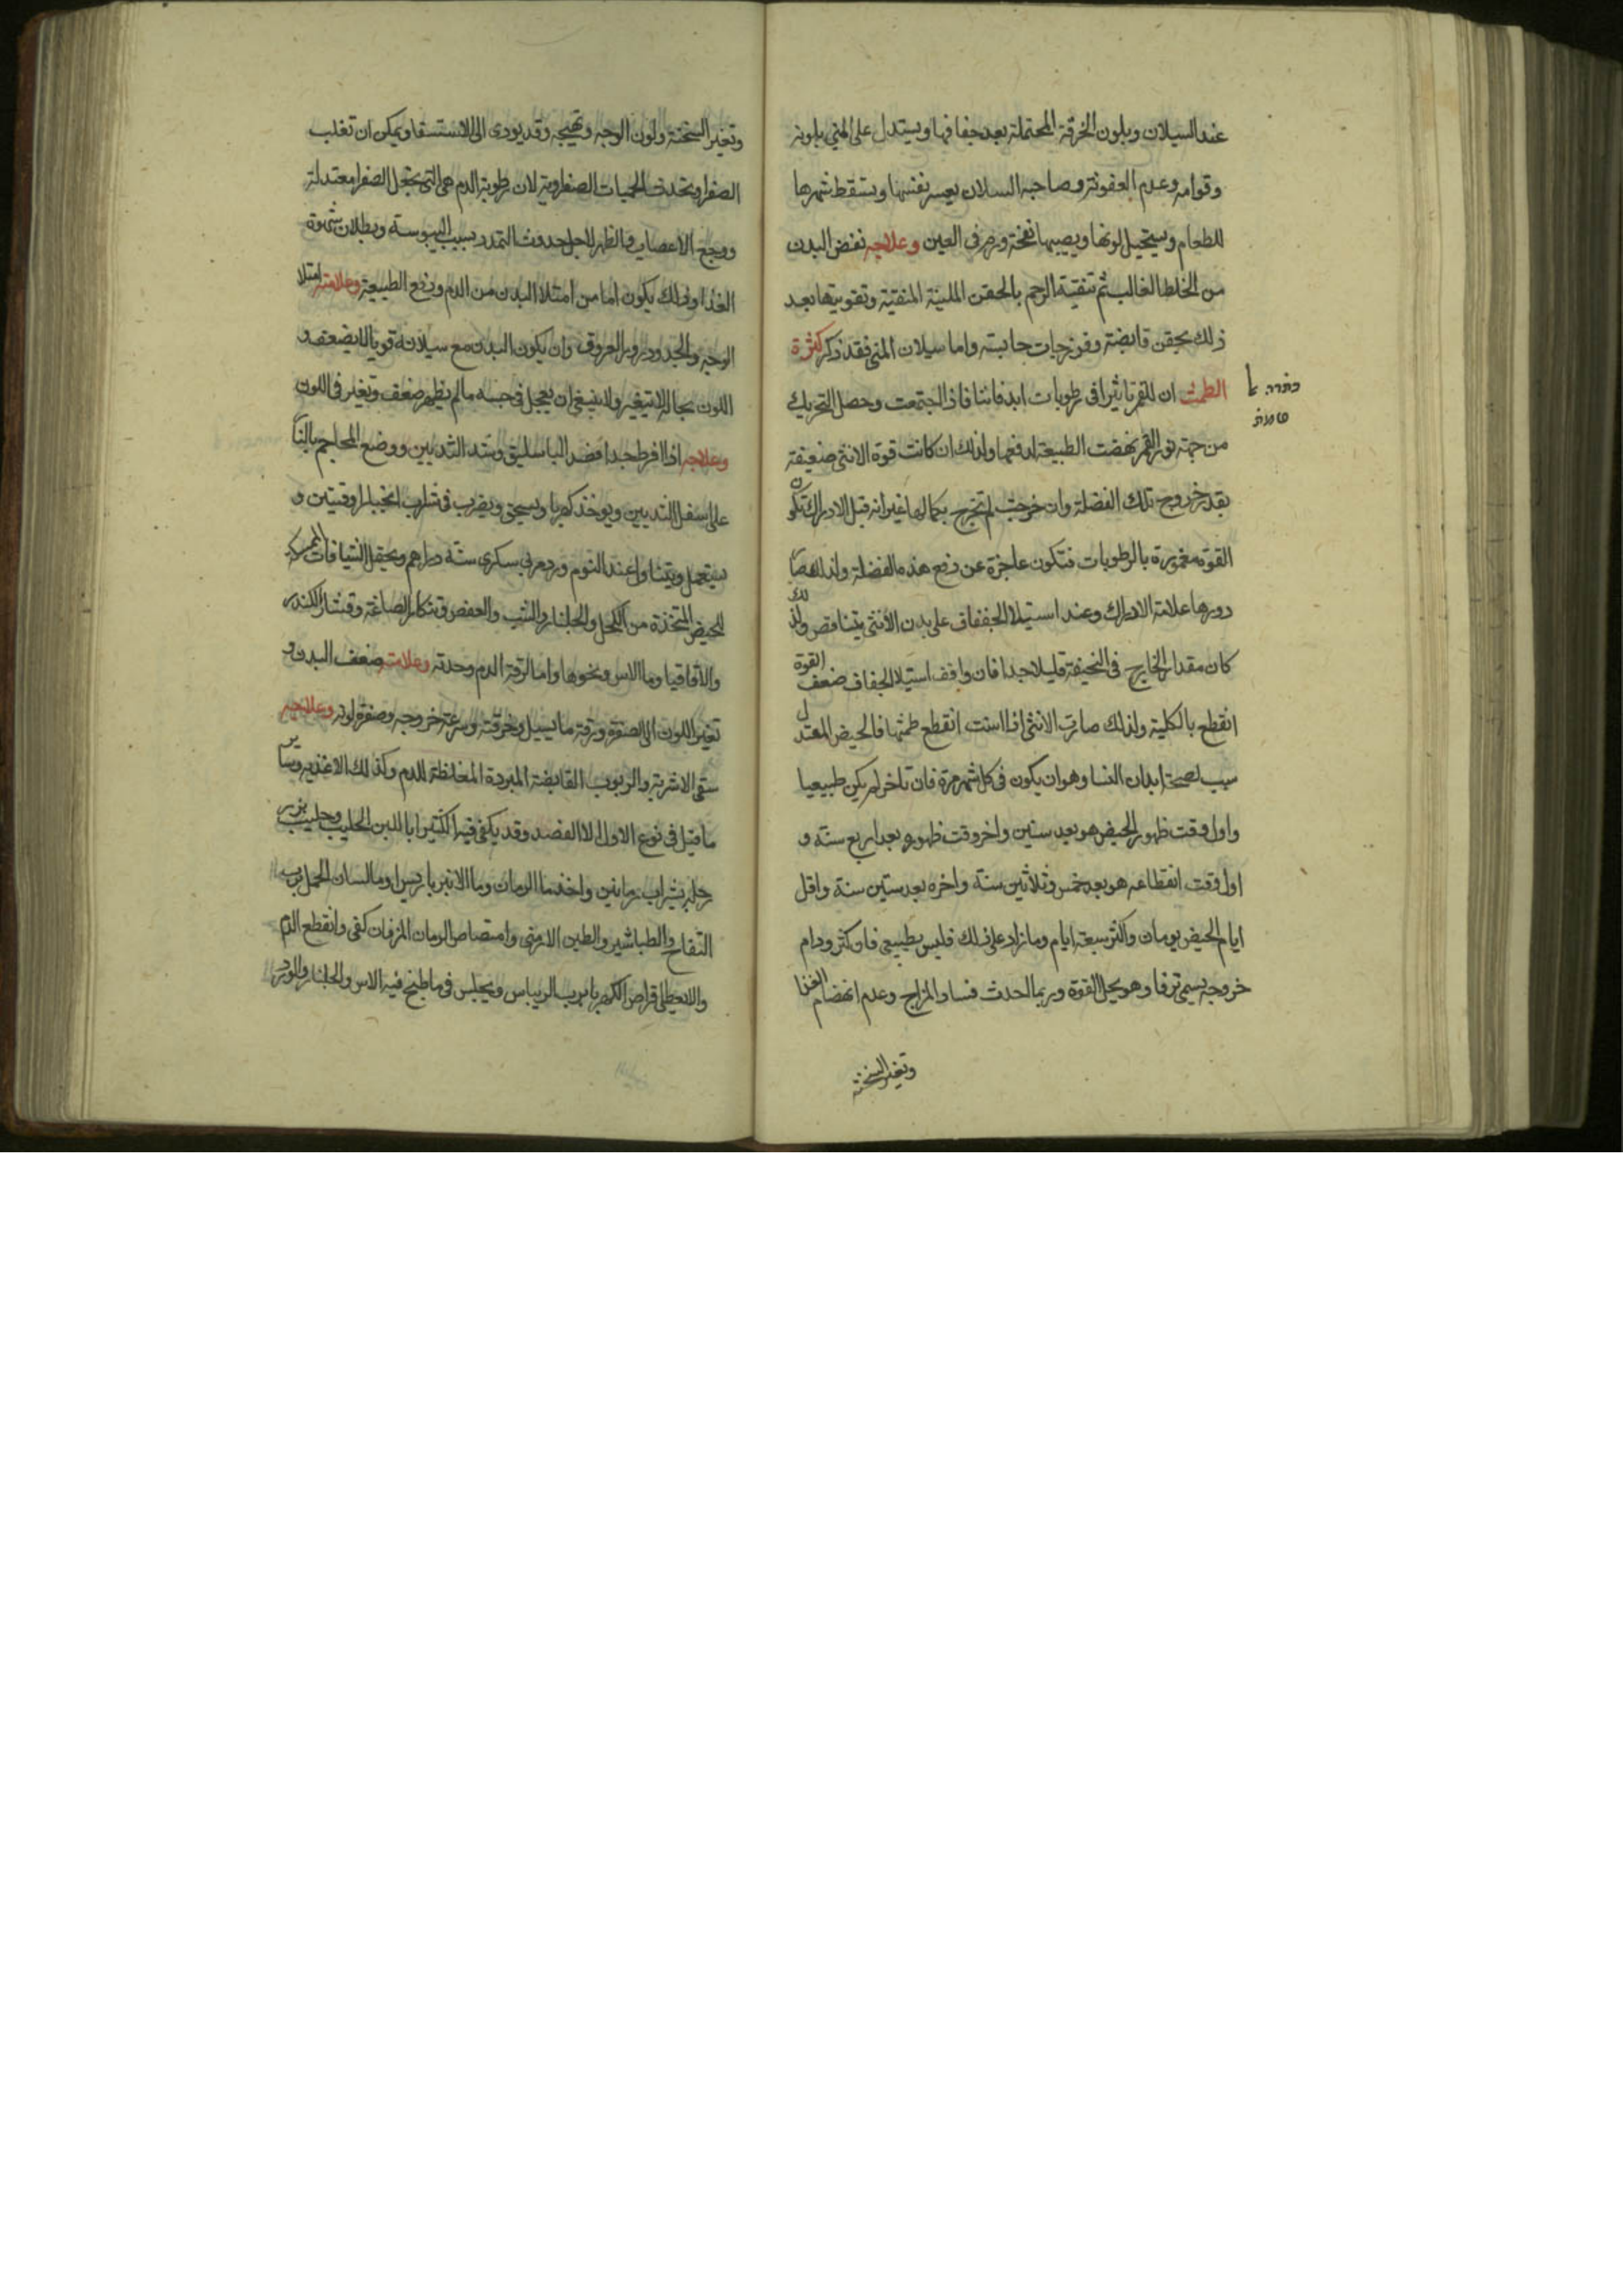 عند السيلان وبلون الخرقة المحتملة بعد جفافها ويستدل على المني بلونه
وقوامه وعدم العفونة وصاحبة السلان يعسر نفسها ويسقط شهوها
للطعام ويستحيل لونها ويصيبها نفخة ورم في العين وعلاجه نفض البدن
من الخلط الغالب ثم تنقية الرحم بالحقن الملينة المنقية وتقويتها بعد
ذلك بحقن قابضة وفرزجات حابسة واما سيلان المني فقد ذكر كثرة
الطمث ان للقمر تاثيرا في رطوبات ابداننا فاذا اجتمعت وحصل التحريك
من جهة نور القمر نهضت الطبيعة لدفعها ولذلك ان كانت قوة الانثى ضعيفة
بقد خروج تلك الفضلة وان خرجت لم تخرج بكمالها غير انه قبل الادراك تكون
القوة مغمورة بالرطوبات فتكون عاجزة عن دفع هذه الفضلة ولذلك صا
دورها علامة الادراك وعند استيلا الجففاف على بدن الانثى يتناقص ولذلك
كان مقدار الخارج في النحيفة قليلا جدا فان وافف استيلا الجفاف ضعف القوة
انقطع بالكلية ولذلك صارت الانثى اذا اسنت انقطع طمثها فالحيض المعتدل
سبب لصحة ابدان النسا وهو ان يكون في كل شهر مرة فان تاخر لم يكن طبيعيا
واول وقت ظهور الحيض هو بعد سنين واخر وقت ظهوره بعد اربع سنة و
اول وقت انقطاعه هو بعد خمس وثلاثين سنة واخره بعد ستين سنة واقل
ايام الحيض يومان واكثره سبعة ايام وما زاد على ذلك فليس بطبيعي فان كثر ودام
خروجه يسمى نزفا وهو يحل القوة وربما احدث فساد المزاج وعدم انهضام الغذا
وتغير السخنة
وتغير السخنة ولون الوجه وتهيجه وقد يودى الى الاستسقا ويمكن ان تغلب
الصفرا وتحدث الحميات الصفراوية لان رطوبة الدم هي التي تجعل الصفرا معتدلة
ووجع الاعصاب والظهر لاجل حدوث التمدد بسبب اليبوسة وبطلان شهوة
الغذا وذلك يكون اما من امتلا البدن من الدم ودفع الطبيعة وعلامته امتلا
الوجه والجسد ودرور العروق وان يكون البدن مع سيلانه قويا لا يضعف و
اللون بحاله لا يتغير ولا ينبغي ان يعجل في حبسه ما لم يظهر ضعف وتغير في اللون
وعلاجه اذا افرط جدا فصد الباسليق وشد الثديين ووضع المحاجم بالنا
على اسفل الثديين ويوخذ كهربا ويسحق ويضرب في شراب انجبار اوقيتين و
يستعمل ويتناول عند النوم ورد مربى سكرى ستة دراهم وتحمل الشيافات الممسكة
للحيض المتخذة من الكحل والجلنار والشب والعفص وتنكار الصاغة وقشار الكندر
والاقاقيا وما الاس ونحوها واما لرقة الدم وحدته وعلامته ضعف البدن و
تغير اللون الى الصفرة ورقة ما يسيل وحرقته وسرعة خروجه وصفرة لونه وعلاجه
سقى الاشربة والربوب القابضة المبردة المغلظة للدم وكذلك الاغذيه وساير
ما قيل في نوع الاول الا الفصد وقد يكفى فيه الكثيرا باللبن الحليب وحليب بزر
رجله بشراب رمانين واخذ ما الرمان وما الانبرباريس او ما لسان الحمل برب
التفاح والطباشير والطين الارمني وامتصاص الرمان المز فان كفى وانقطع الدم
والا يعطى اقراص الكهربا برب الريباس ويجلس في ما طبخ فيه الاس والجلنار والورد